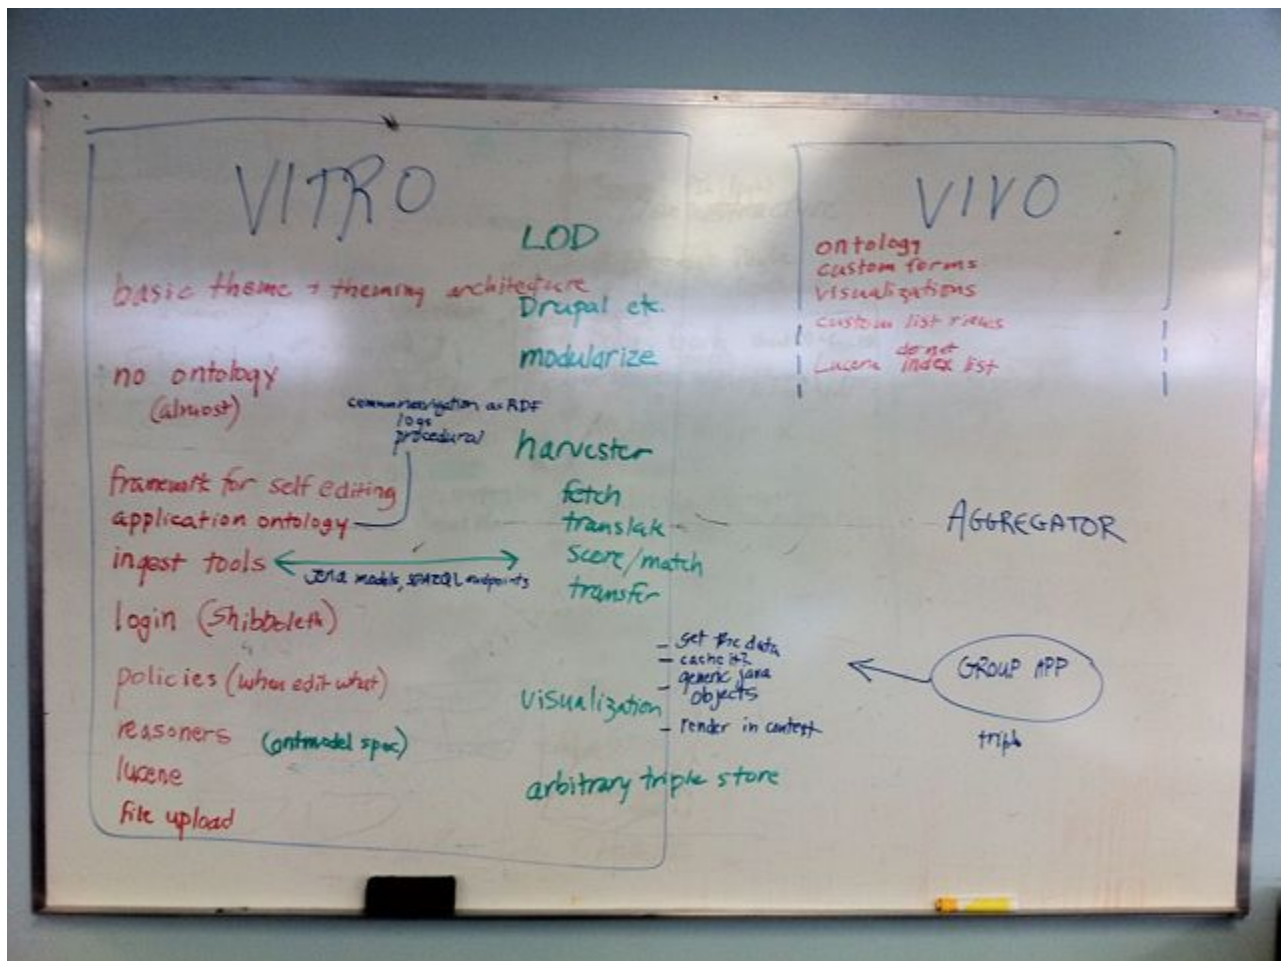 VITRO
basic theme + theming architecture
no ontology
(almost)
as RDF
logs
procedural
framework for self editing
application ontology
ingest tools
Jena models, SPARQL endpoints
login (Shibboleth)
policies (when edit what)
reasoners (ontmodel spec)
lucene
file upload
LOD
Drupal etc.
modularize
harvester
fetch
translate
score/match
transfer
visualization
- get the data
- cache it?
- generic java
objects
- render in context
arbitrary triple store
VIVO
ontology
custom forms
visualizations
custom list views
do not
Lucene index list
AGGREGATOR
GROUP APP